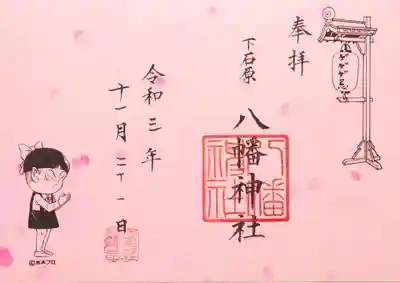 奉拝
ゲゲゲ忌
下石原
八幡神社
八幡
神社
令和三年
十一月二十一日
©水木プロ